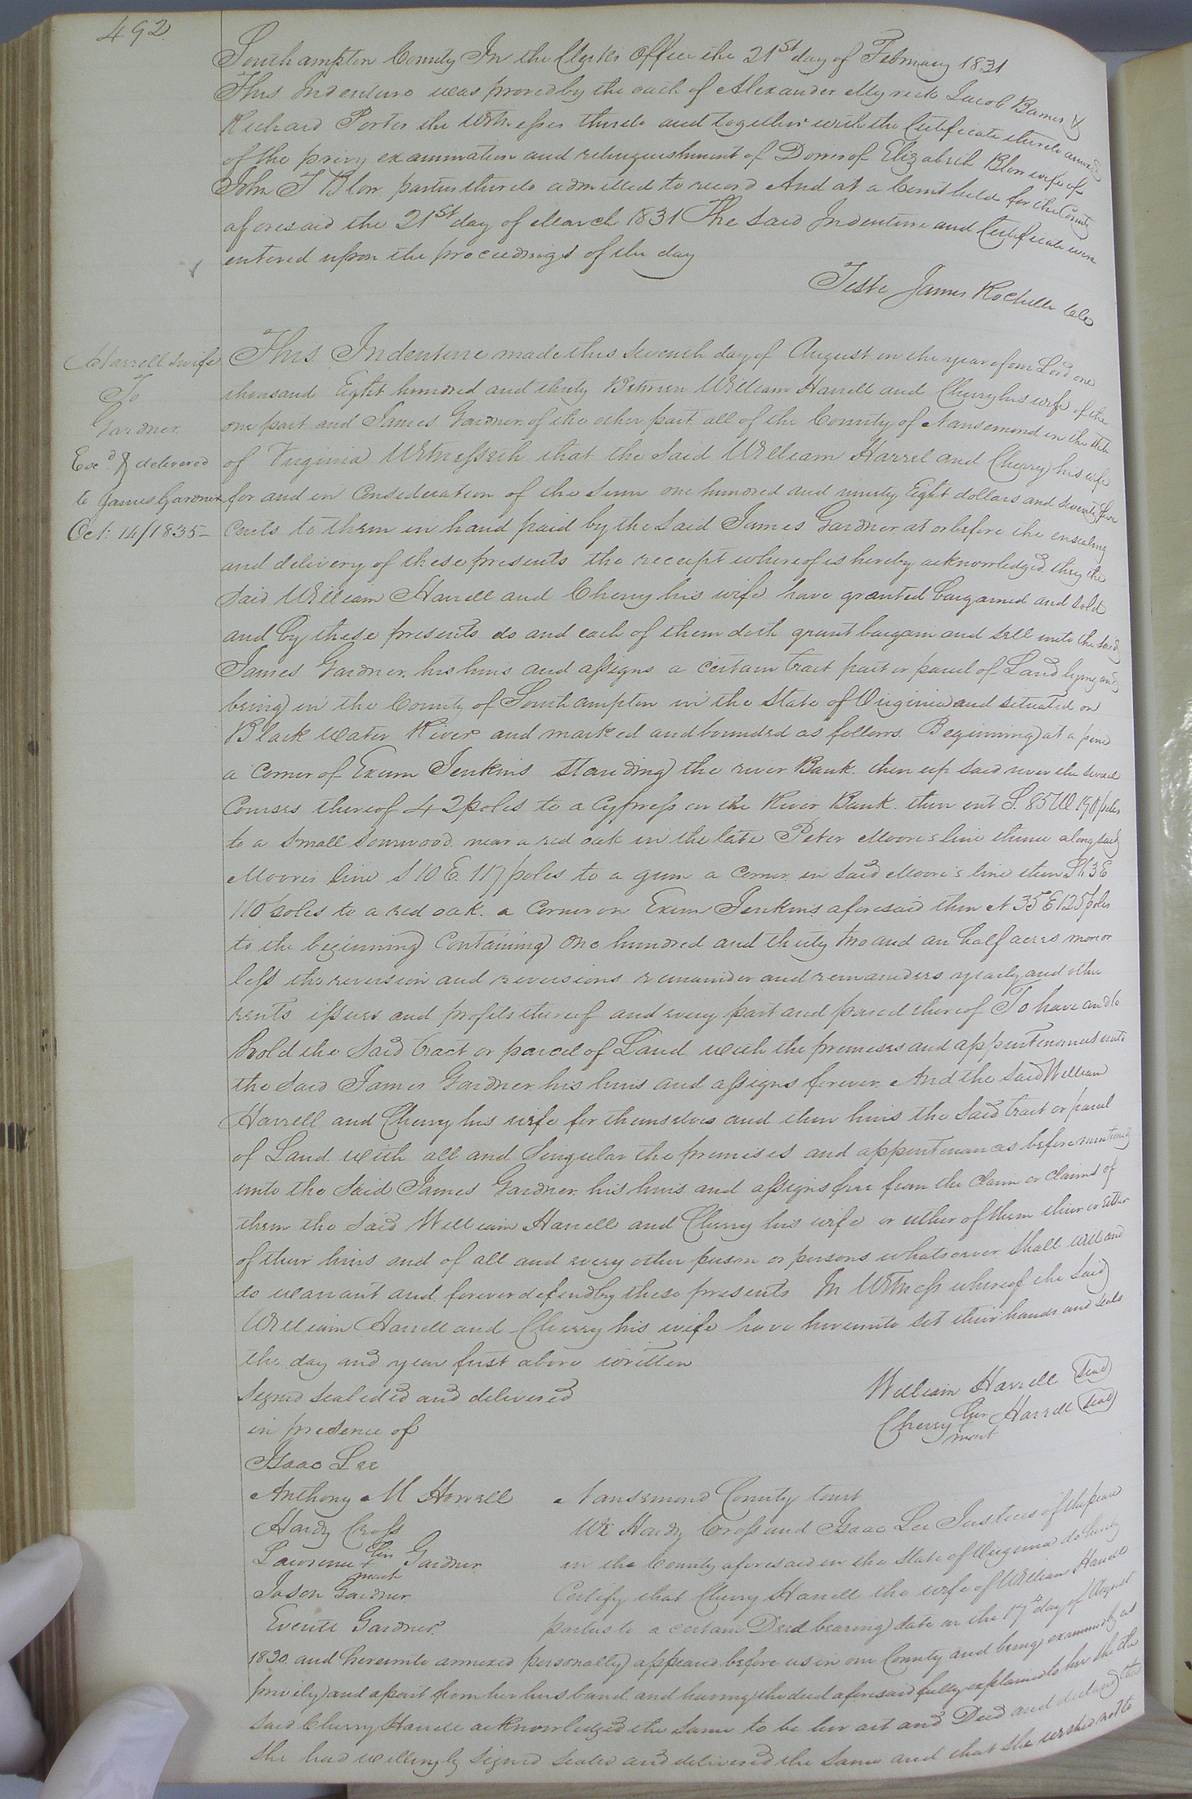 492
Southampton County In the Clerks Office the 21st day of February 1831
This Indenture was proved by the oath of Alexander Myrick Jacob Barnes &
Richard Porter the Witnesses thereto and together with the Certificate thereto annexed
of the privy examination and relinquishment of Dower of Elizabeth Blow wife of
John T Blow parties thereto admitted to record And at a Court held for the County
aforesaid the 21st day of March 1831 The Said Indenture and Certificate were
entered upon the proceedings of the day
Teste James Rochelle
Harrell & wife
To
Gardner
Exd & delivered
to James Gardner
Oct: 14/1835-
This Indenture made this Seventh day of August in the year of our Lord one
thousand Eight hundred and thirty Between William Harrell and Cherry his wife of the
one part and James Gardner of the other part all of the County of Nansemond in the State
of Virginia Witnesseth that the Said William Harrel and Cherry his wife
for and in Consideration of the Sum one hundred and ninety Eight dollars and seventy five
Cents to them in hand paid by the Said James Gardner at or before the ensealing
and delivery of these presents the receipt whereof is hereby acknowledged they the
Said William Harrell and Cherry his wife have granted bargained and Sold
and by these presents do and each of them doth grant bargain and sell unto the said
James Gardner his heirs and assigns a certain tract part or parcel of Land lying and
being in the County of Southampton in the State of Virginia and situated on
Black water River and marked and bounded as follows. Beginning at a pine
a Corner of Exum Jenkins Standing the river Bank. then up said river the several
Courses thereof 42 poles to a Cypress on the River Bank. then out S. 85 W 190 poles
to a Small Sourwood near a red oak in the late Peter Moore's line thence along said
Moores line S 10 E. 117 poles to a gum a Corner in Said Moore's line then
110 poles to a red oak. a Corner on Exum Jenkins aforesaid then N 35 E 125 poles
to the beginning Containing One hundred and thirty two and an half acres more or
less the reversion and reversions remainder and remainders yearly and other
rents issues and profits thereof and every part and parcel thereof To have and to
hold the Said tract or parcel of Land with the premises and appurtenances unto
the Said James Gardner his heirs and assigns forever. And the Said William
Harrell and Cherry his wife for themselves and their heirs the Said tract or parcel
of Land with all and Singular the premises and appurtenances before mentioned
unto the Said James Gardner his heirs and assigns free from the Claim or claims of
them the Said William Harrell and Cherry his wife or either of them their or either
of their heirs and of all and every other person or persons whatsoever Shall will and
do warrant and forever defend by these presents In Witness whereof the Said
William Harrell and Cherry his wife have hereunto set their hands and seals
the day and year first above written
Signed Sealed and delivered
in presence of
William Harrell (Seal)
Cherry her mark Harrell (Seal)
Isaac Lee
Anthony M Harrell
Hardy Cross
Lawrence his + mark Gardner
Jason Gardner
Everitt Gardner
Nansemond County Court
We Hardy Cross and Isaac Lee Justices of the peace
in the County aforesaid in the State of Virginia do hereby
Certify that Cherry Harrell the wife of William Harrell
parties to a certain Deed bearing date on the 17th day of August
1830 and hereunto annexed personally appeared before us in our County and being examined by us
privily and apart from her husband and having the deed aforesaid fully explained to her She the
Said Cherry Harrell acknowledged the Same to be her act and Deed and declared that
She had willingly Signed Sealed and delivered the Same and that She wished not to